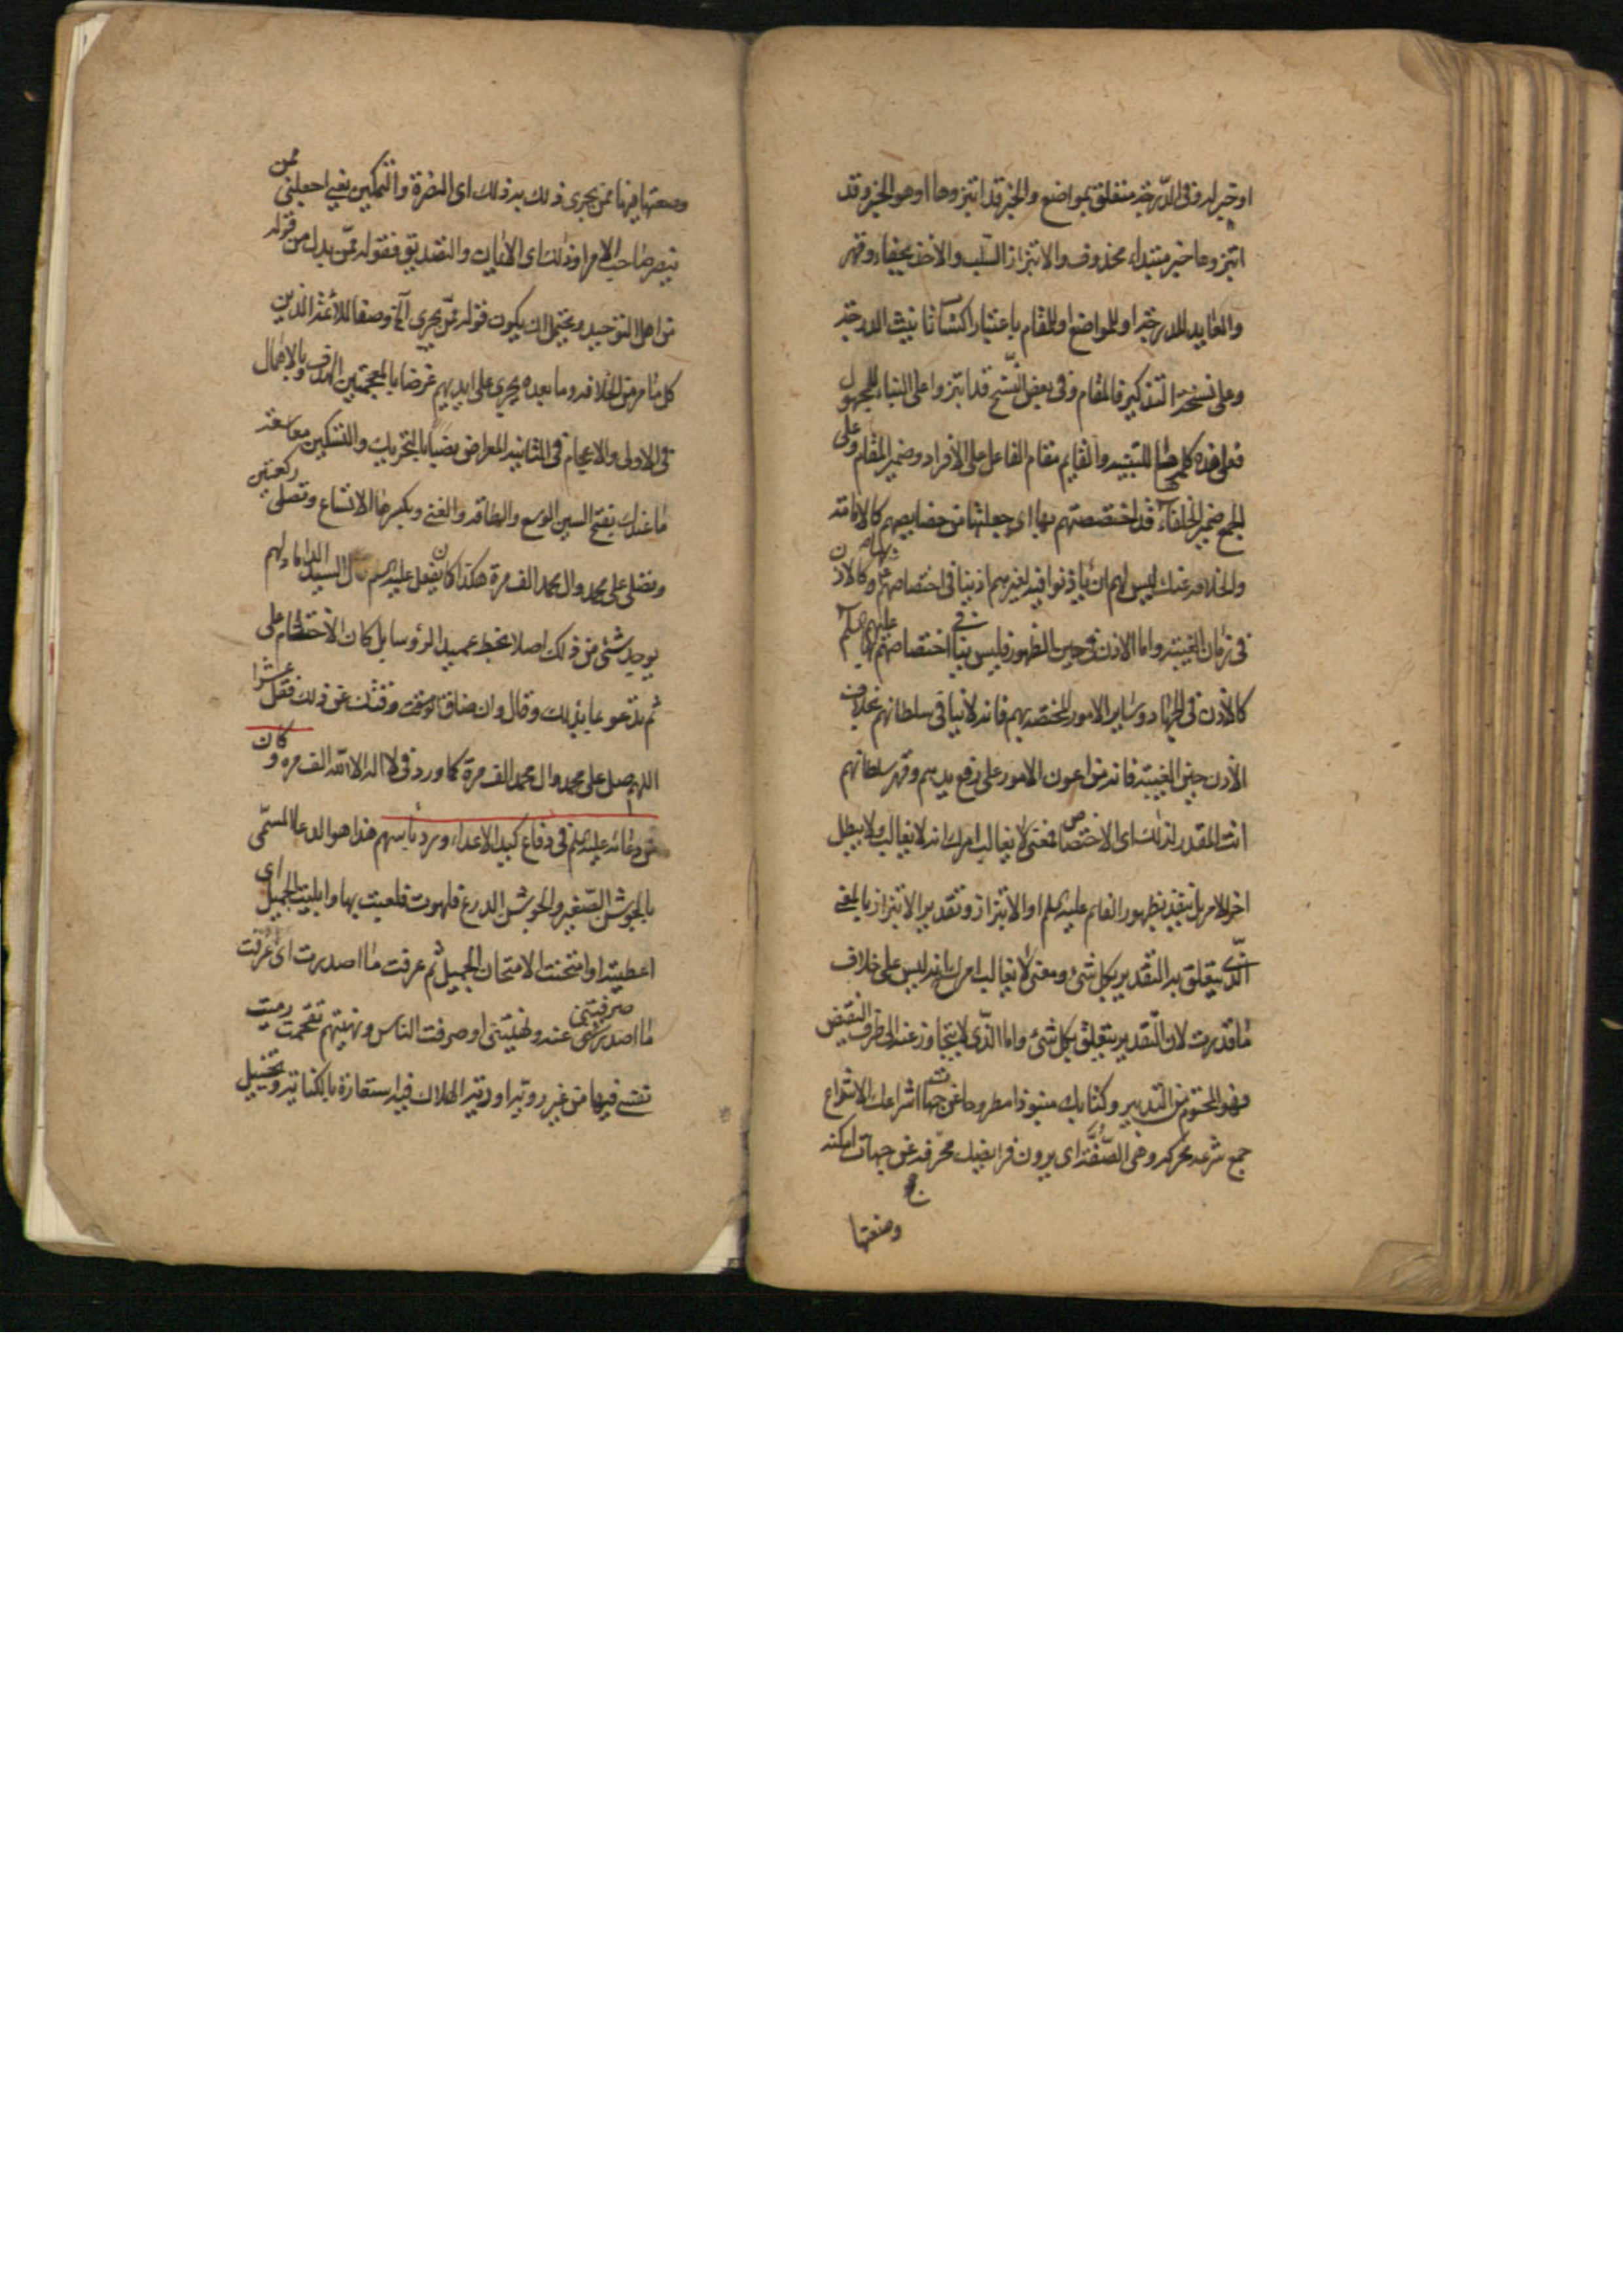 او خبر له وفي الدرجة متعلق بمواضع والخبر قد ابتزوها او هو الخبر وقد
ابتزوها خبر مبتداء محذوف والابتزاز السلب والاخذ بجفاء وقهر
والعايد للدرجة او للمواضع او للمقام باعتبار اكتسا تانيث الدرجة
وعلى نسخة التذكير فالمقام وفي بعض النسخ قد ابتزوا على البناء للمجهول
فعلى هذه كلمه ها للتنبيه والقايم مقام الفاعل على الافراد وضمير المقام وعلى
الجمع ضمير الخلفاء قد اختصصتهم بها اي جعلتها من خصايصهم كالاقامة
والخلافه عندك ليس لهم ان ياذنوا فيه لغيرهم اذ ينافي اختصاصهم وكالاذن
في زمان الغيبة واما الاذن في حين الظهور فليس ينافي اختصاصهم بها عليهم السلم
كالاذن في الجهاد وساير الامور المختصه بهم فانه لا ينافي سلطانهم بخلاف
الاذن حين الغيبة فانه من اعون الامور على رفع يدهم وقهر سلطانهم
انت المقدر لذلك اي الاختصاص فمعنى لا يغالب امرك انه لا يغالب ولا يبطل
اخر الامر بل ينفذ بظهور القايم عليه السلم او الابتزاز وتقدير الابتزاز بالمعنى
الذي يتعلق به التقدير بكل شئ ومعنى لا يغالب امرك بانه ليس على خلاف
ما قدرت لان التقدير يتعلق بكل شئ واما الذي لا يتجاوز عنه الى طرف النقيض
فهو المحتوم من التدبير وكتابك منبوذا مطروحا عن جهات اشراعك الاشراع
جمع شرعه محركه وهي الصفة اي يرون فرايضك محرفه عن جهات امكنه
وضعتها
وضعتها فيها ممن يجري ذلك به ذلك اي النصرة والتمكين يعني اجعلني ممن
ينصر صاحب الامر او ذلك اي الاثبات والتصديق فقوله ممن بدل من قوله
من اهل التوحيد ويحتمل ان يكون قوله ممن يجري الخ وصفا للائمة الذين
كل ما مر من الخلافه وما بعده يجري على ايديهم غرضا بالمعجمتين الهدف وبالاهمال
في الاولى والاعجام في الثانيه المعارض بضيا بالتحريك والتسكين معا سعة
ما عندك بفتح السين الوسع والطاقه والغنى وبكسرها الاتساع وتصلي ركعتين
وتصلي على محمد وال محمد الف مرة هكذا كان يفعل عليه السلم قال السيد الداماد لم
يوجد شئ من ذلك اصلا بخط عميد الرؤسا بل كان الاختتام على
ثم تدعو بما بدا لك وقال وان ضاق الوقت وقتك عن ذلك فقل عشرا
اللهم صل على محمد وال محمد الف مرة كما ورد في لا اله الا الله الف مره وكان
من دعائه عليه السلم في دفاع كيد الاعداء ورد باسهم هذا هو الدعا المسمى
بالجوشن الصغير والجوشن الدرع فلهوت فلعبت بها وابليت الجميل اي
اعطيته او امتحنت الامتحان الجميل ثم عرفت ما اصدرت اي عرفت
ما اصدرتني صرفتني عنه ونهيتني او صرفت الناس ونهيتهم تقحمت رميت
نفسي فيها من غير رويه اوديه الهلاك فيه استعارة بالكنايه وتخييل